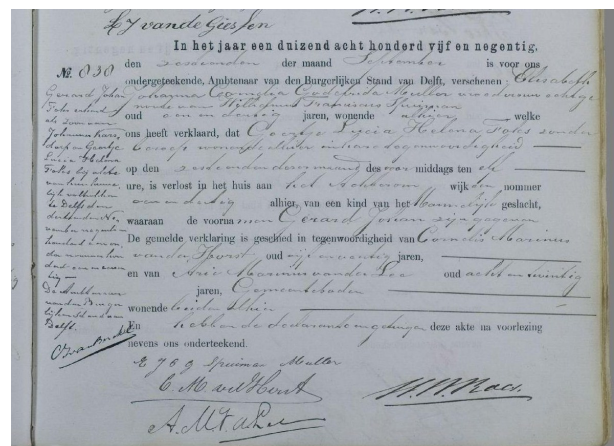 HJ vande Giessen
In het jaar een duizend acht honderd vijf en negentig,
No. 830
den zesden der maand September is voor ons
ondergeteekende, Ambtenaar van den Burgerlijken Stand van Delft, verschenen: Elisabeth
Johanna Cornelia Muller vroedvrouw echtge
noote van Wilhelmus Franciscus Spuijman
oud een en dertig jaren, wonende alhier welke
ons heeft verklaard, dat Geertje Lucia Helena Fakes zonder
beroep wonende alhier in hare tegenwoordigheid
op den dezer maand des voor middags ten
ure, is verlost in het huis aan het Achterom wijk nommer
een en dertig alhier, van een kind van het Mannelijk geslacht,
waaraan de voornamen Gerard Johan zijn gegeven
De gemelde verklaring is geschied in tegenwoordigheid van Cornelis Marinus
van der Horst oud vijf en veertig jaren,
en van Arie Marinus van der Lee oud acht en twintig
jaren, Gemeenteboden
wonende beiden alhier
En hebben de declarante en getuigen deze akte na voorlezing
nevens ons onderteekend.
Gerard Johan
Fakes erkend
als zoon van
Johannes
en Geertje
Lucia Helena
Fakes bij akte
van huwe
lijk voltrokken
te Delft den
No
vember negentien
honderd
De Ambtenaar
van den Burger
lijken stand van
Delft.
Spuijman Muller
C. M. vd Horst
A. M. V. d Lee